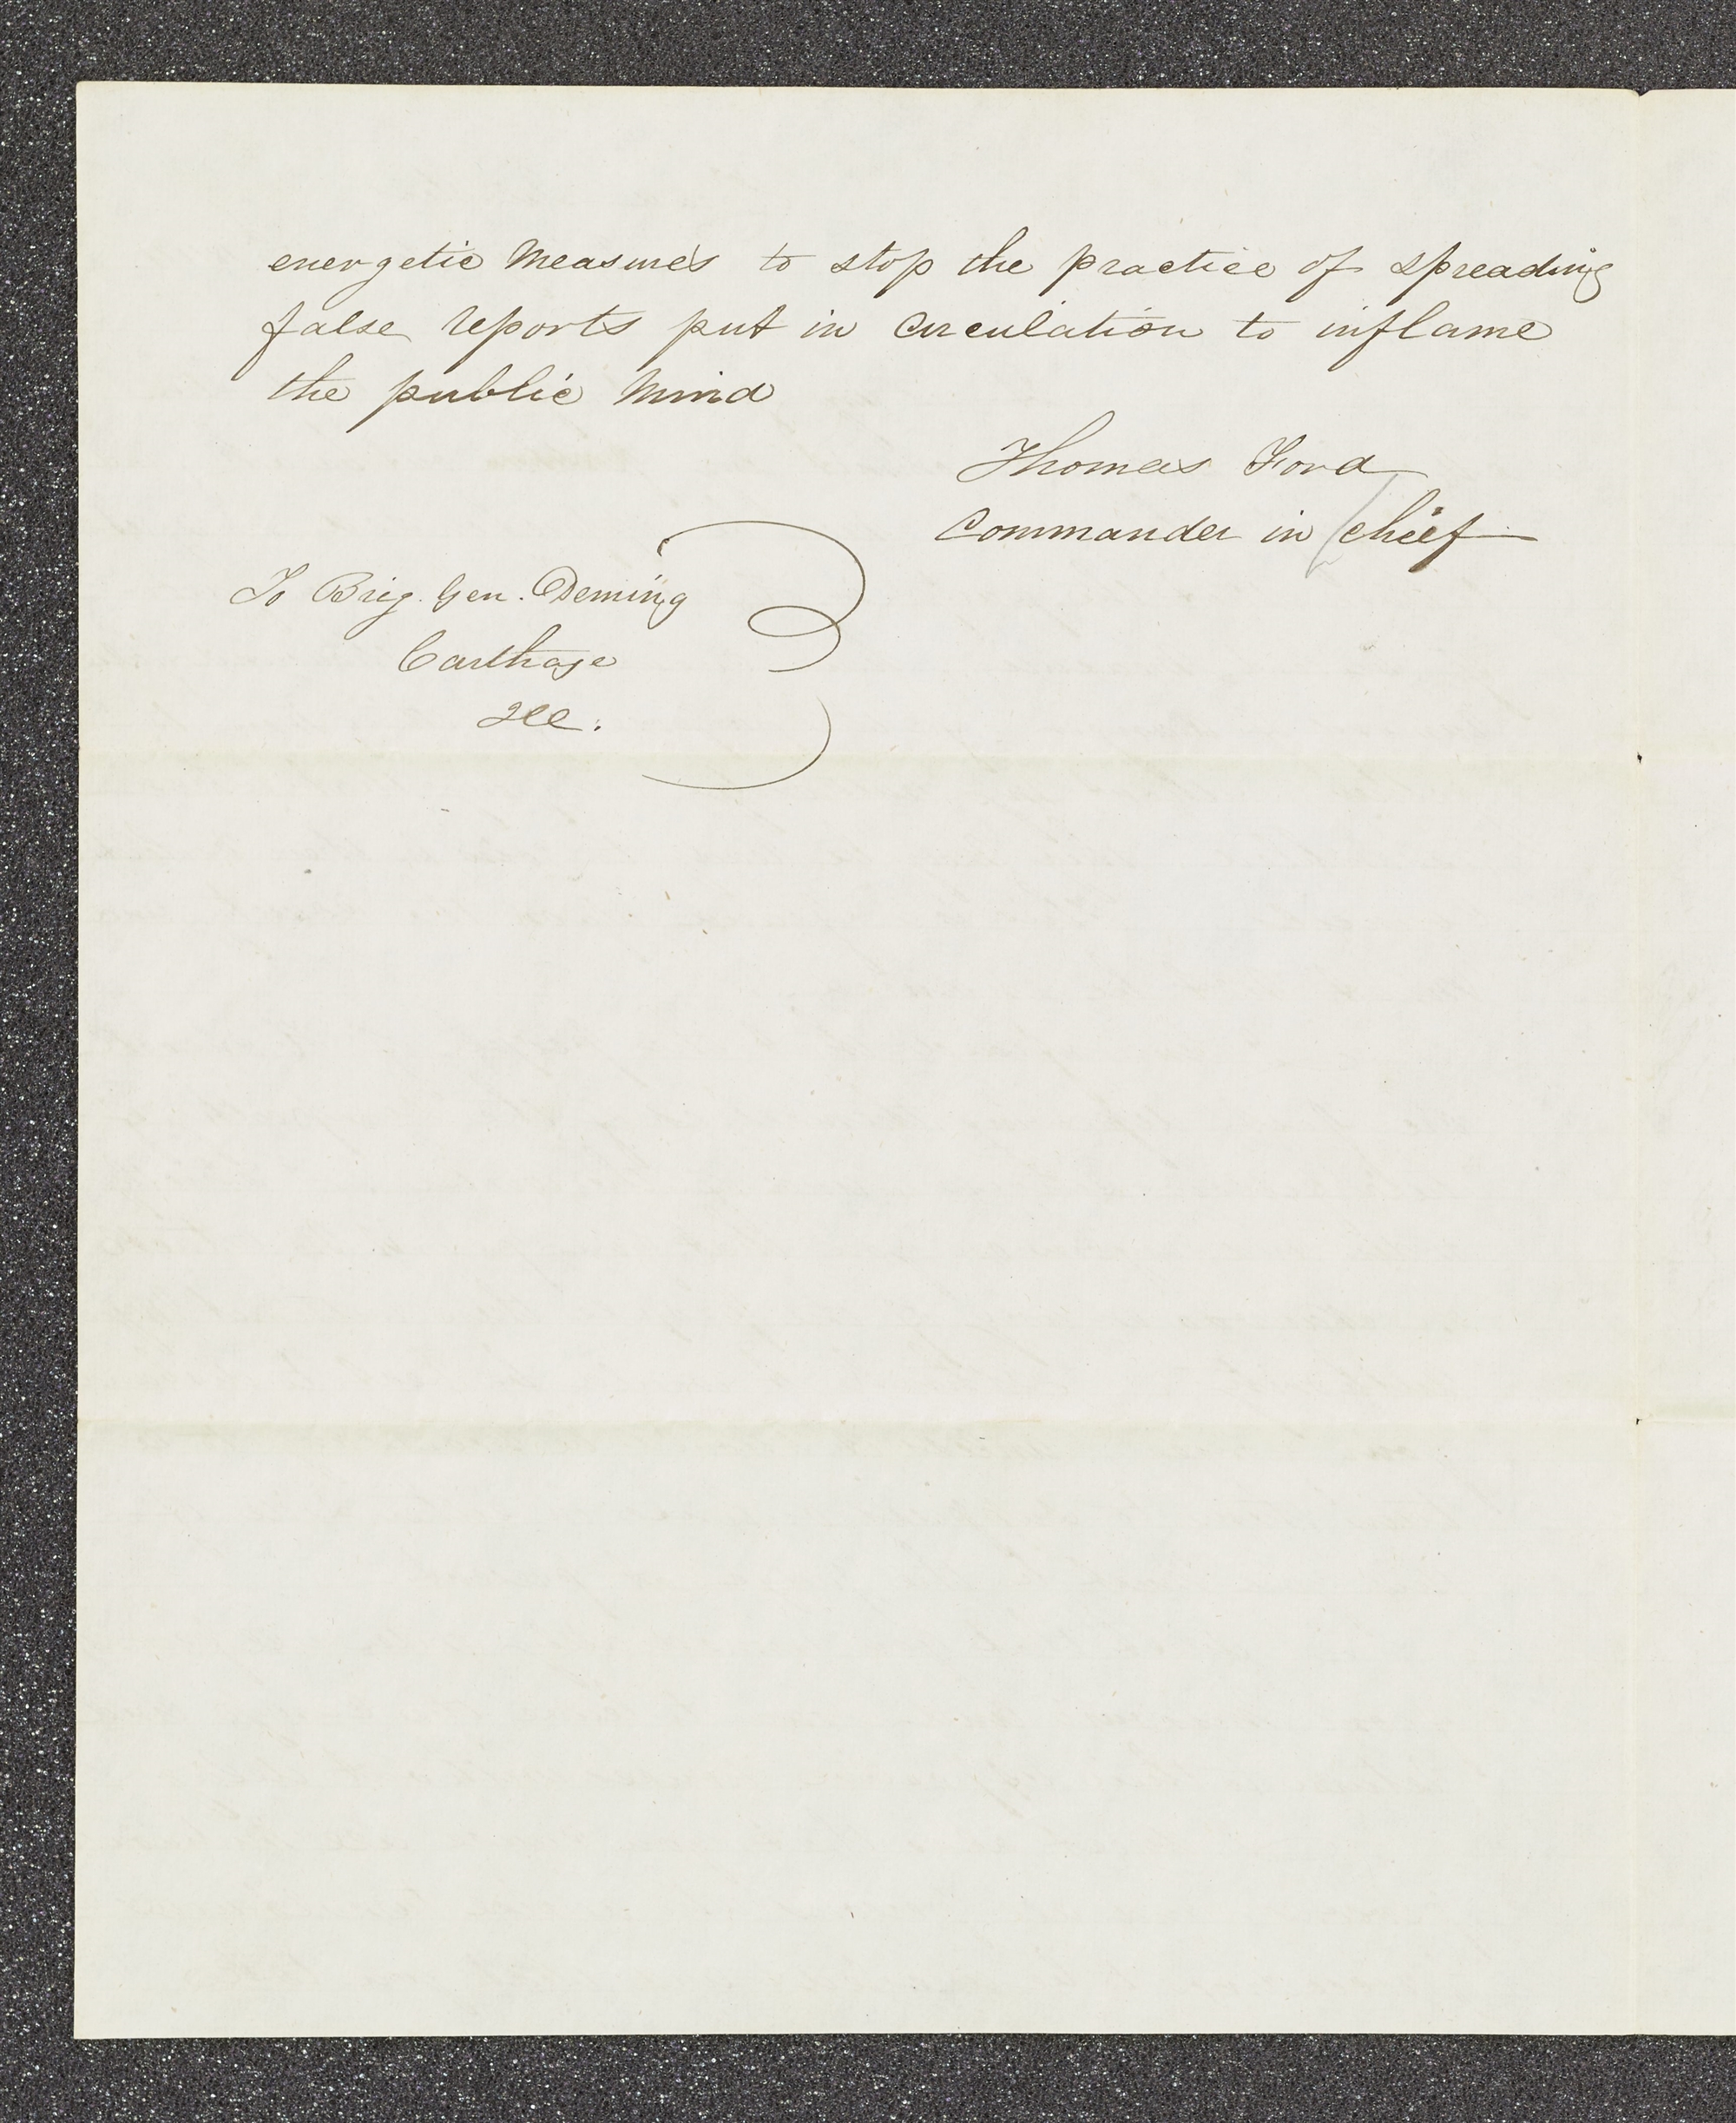 energetic measures to stop the practice of spreading
false reports put in circulation to inflame
the public mind
Thomas Ford
Commander in chief
To Brig. Gen. Deming
Carthage
Ill.